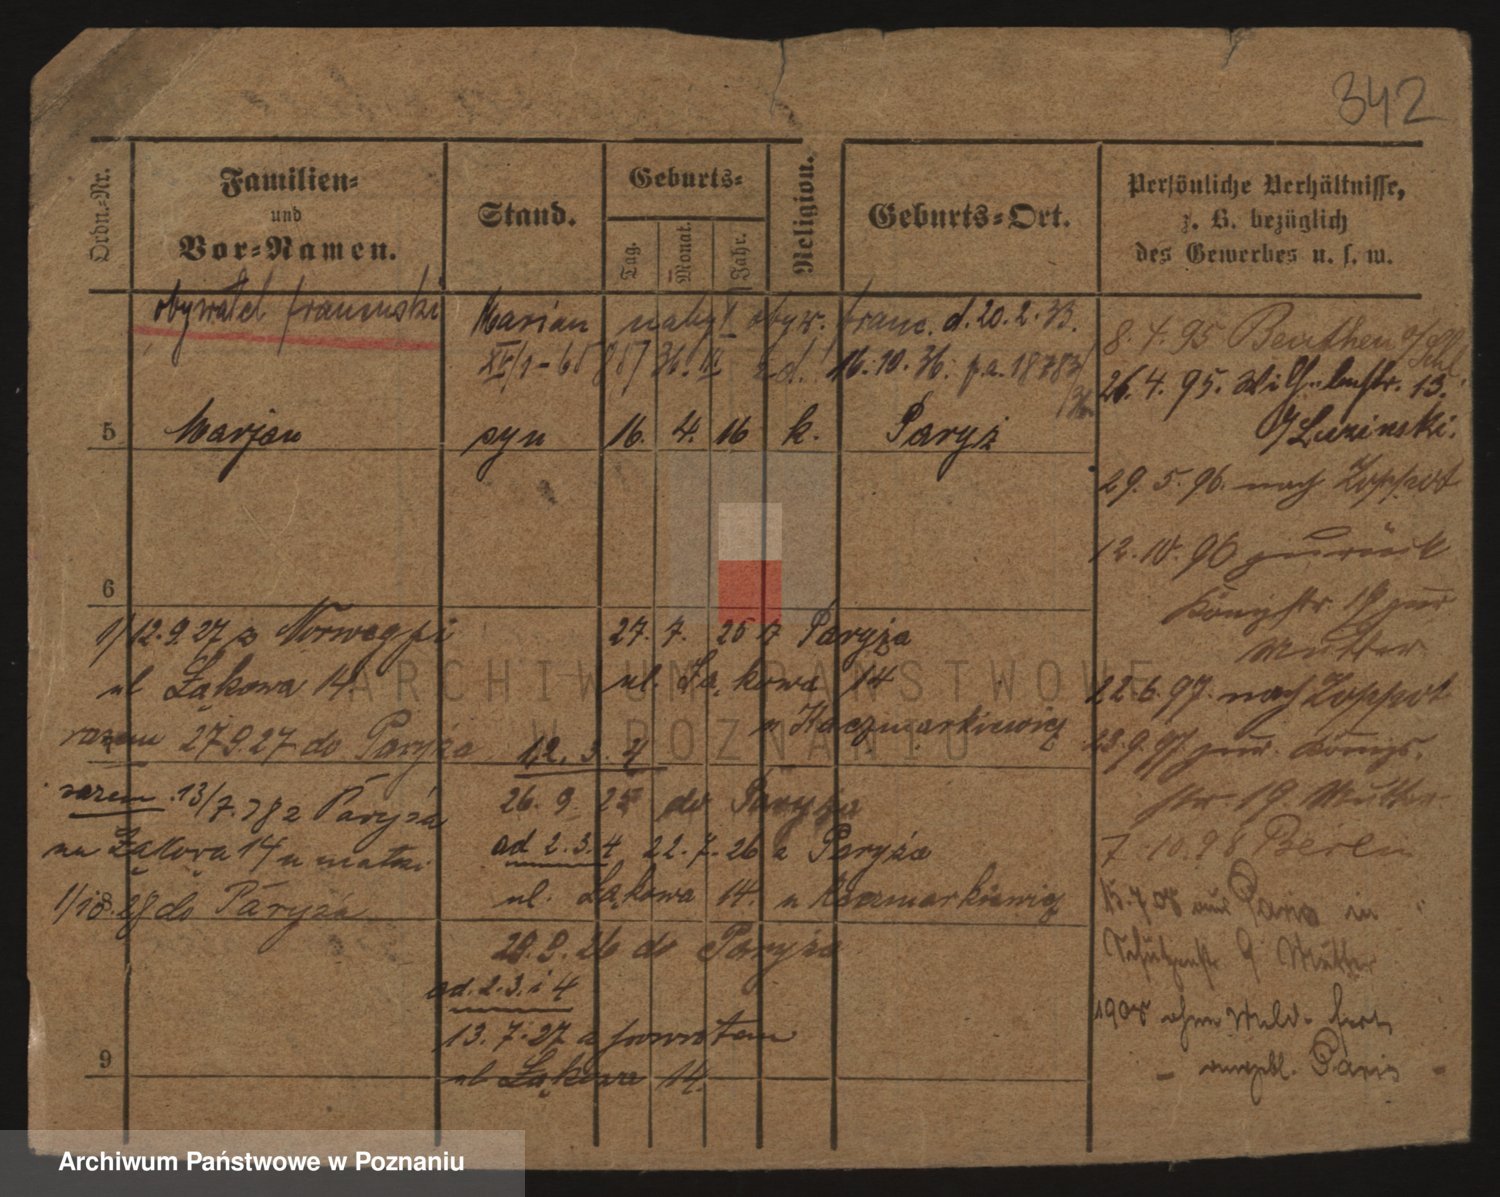 342
Ordn.-Nr.
Familien-
und
Vor-Namen.
Stand.
Geburts-
Tag.
Monat.
Jahr.
Religion.
Geburts-Ort.
Persönliche Verhältnisse,
z. B. bezüglich
des Gewerbes u. s. w.
obywatel francuski
Marian nabył obyw. franc. d. 20.2.33.
16.10.36.
5 Marjan syn 16. 4. 16 k. Paryż
6
1/ 12.9.27 z Norwegji
ul Łąkowa 14
razem 27.9.27 do Paryża
razem 13/7.28 z Paryża
na Łąkowa 14 u matki
do Paryża
27. 7. 25 z Paryża
ul. Łąkowa 14
u Kaczmarkiewicz
1, 2. 3. 4
26. 9. 25 do Paryża
ad 2. 3. 4 22. 7. 26 z Paryża
ul. Łąkowa 14. u Kaczmarkiewicz
29.9.26 do Paryża
ad. 2. 3. i 4
13. 7. 27 z powrotem
ul Łąkowa 14.
9
8. 4. 95 Beuthen
26. 4. 95. Wilhelmstr. 13.
29. 5. 96. nach Zoppot
12. 10. 96 zurück
Königstr 19 zur
Mutter
22. 6. 97. nach Zoppot
23. 9. 97. zur. Königs-
str. 19. Mutter
7. 10. 98 Berlin
15. 7 08 aus Paris in
Schützenstr 9 Mutter
1908 ohne Meld. fort
angebl. Paris
ARCHIWUM PAŃSTWOWE
W POZNANIU
Archiwum Państwowe w Poznaniu